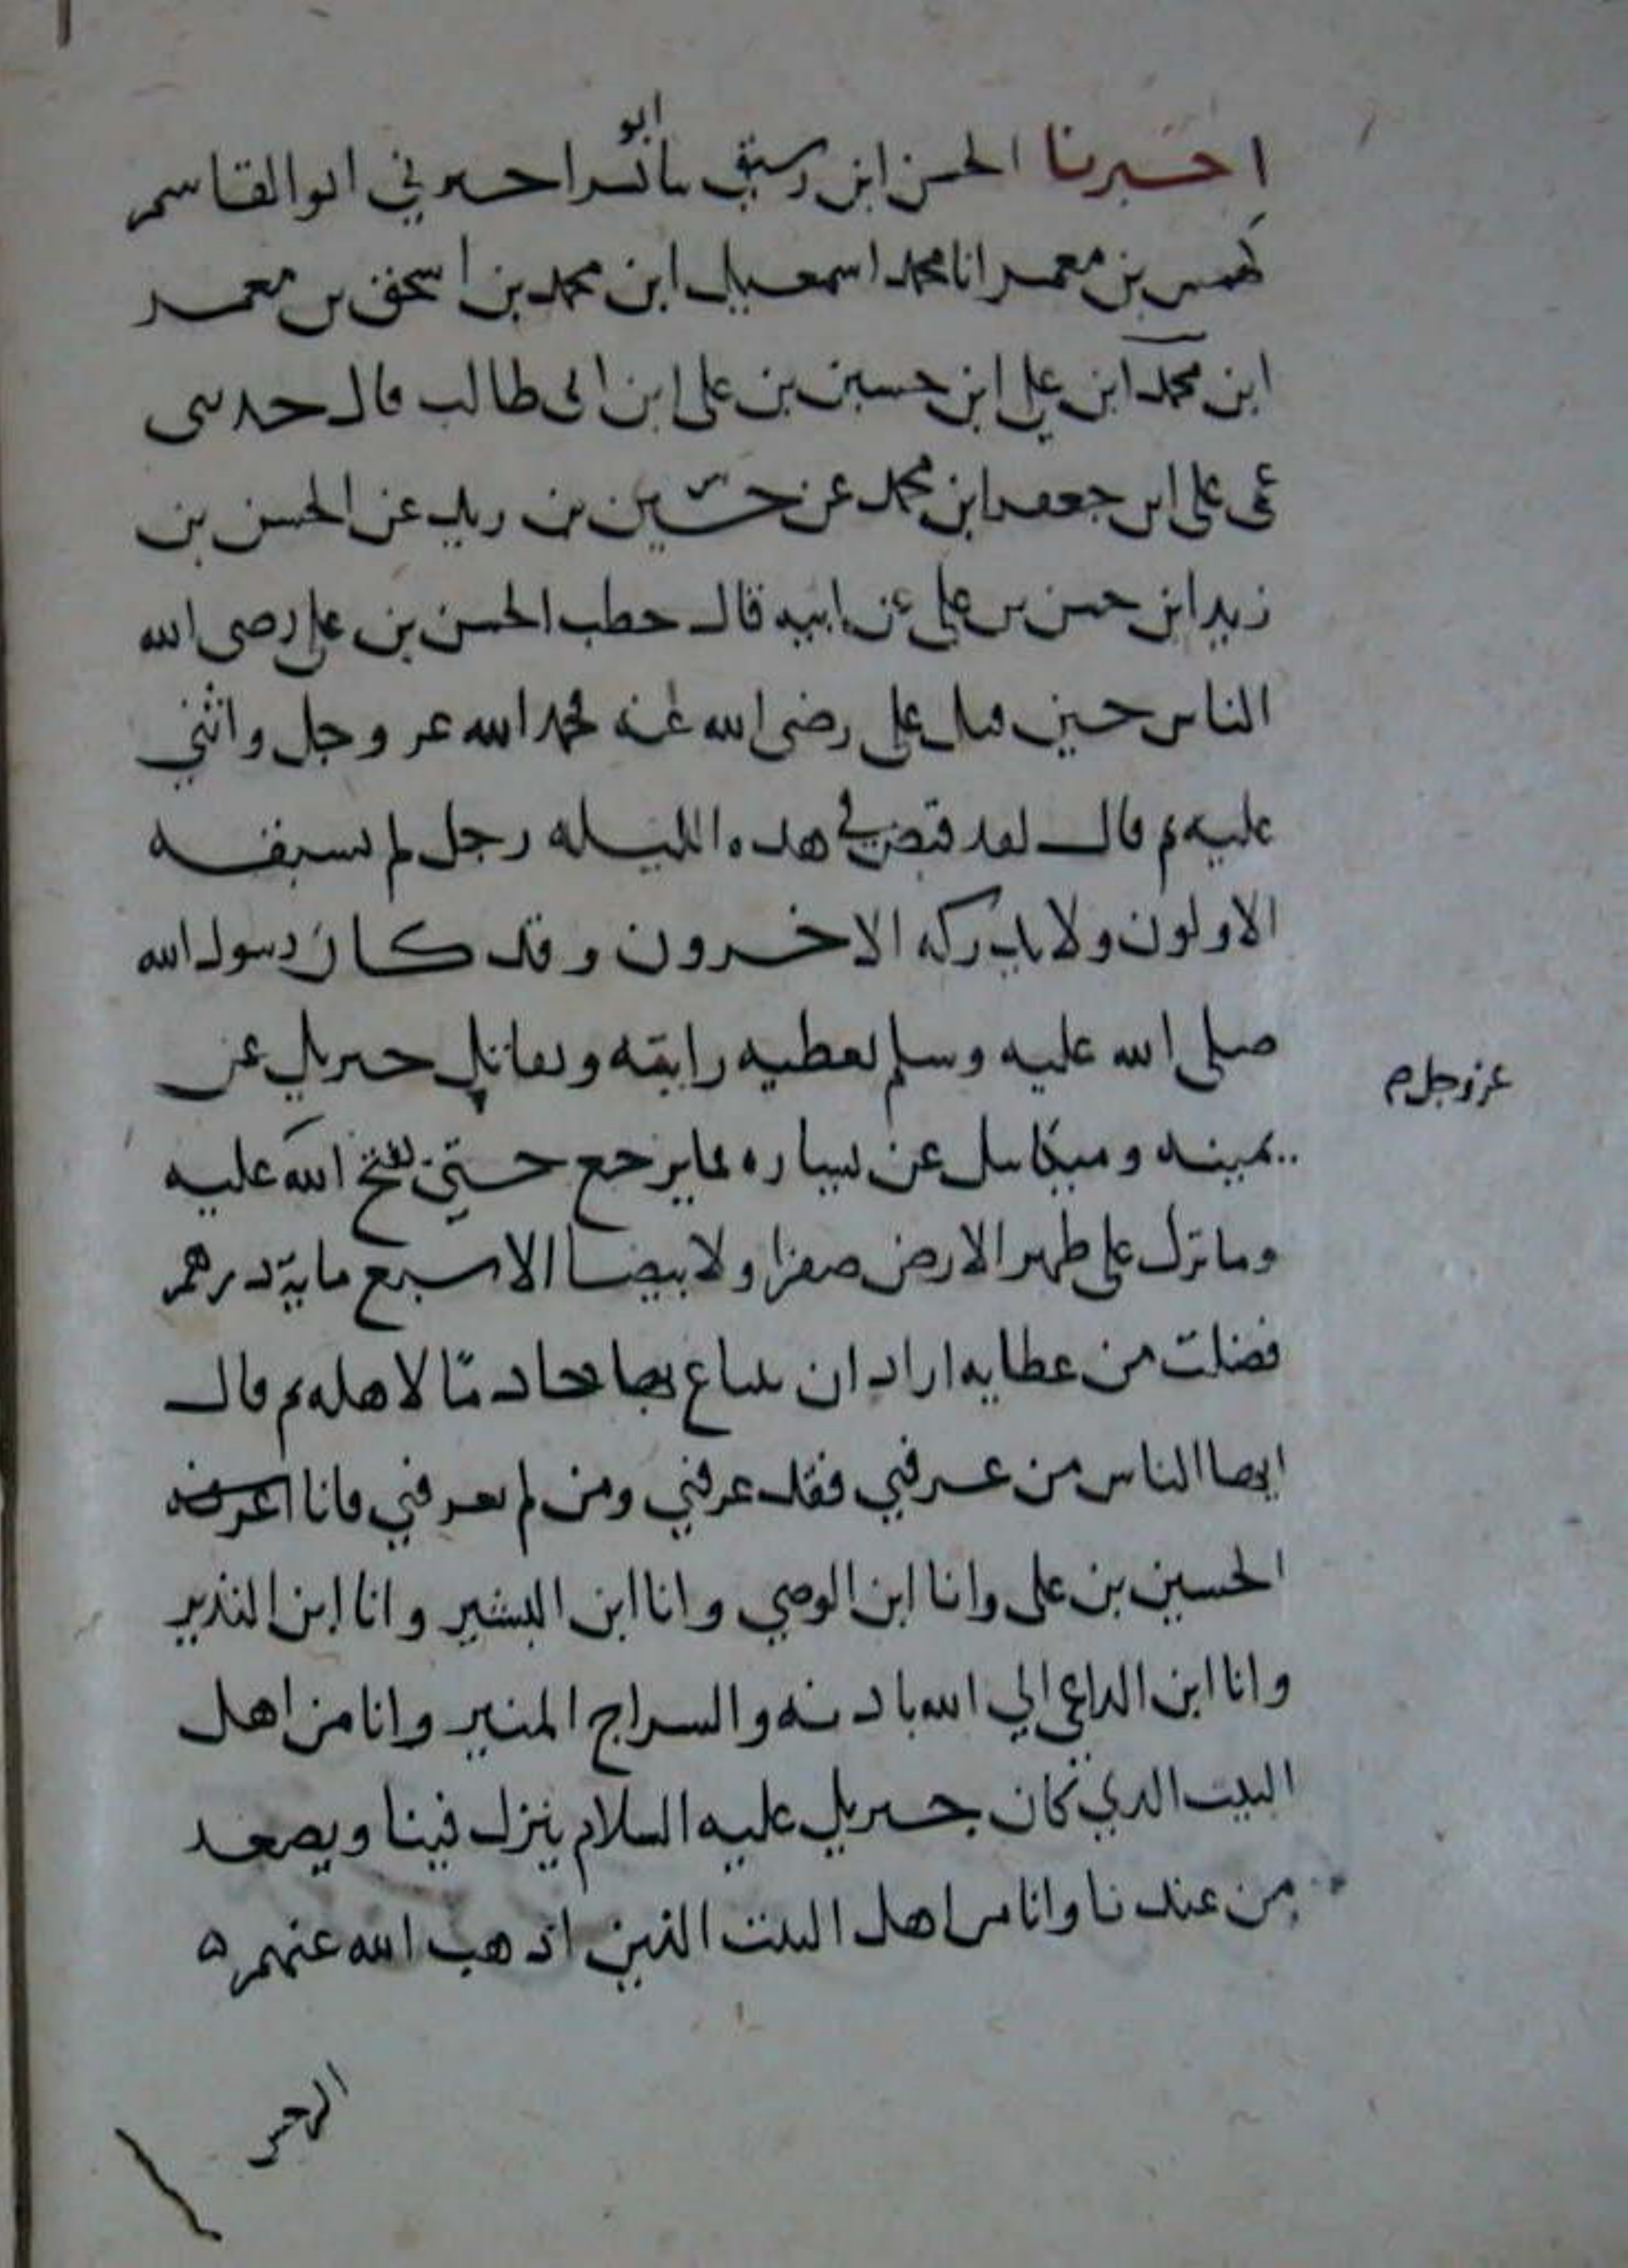 ابو
اخبرنا الحسن ابن رشيق اخبرني ابو القاسم
كهمس بن معمر انا محمد اسمعيل ابن محمد بن اسحق بن معمد
ابن محمد ابن علي ابن حسين بن على ابن ابى طالب قال حدثنى
عمى على ابن جعفر ابن محمد عن حسين بن زيد عن الحسن بن
زيد ابن حسن بن على عن ابيه قال خطب الحسن بن على رضى الله
الناس حين قتل على رضى الله عنه فحمد الله عز وجل واثنى
عليه ثم قال لقد قبض في هذه الليله رجل لم يسبقه
الاولون ولا يدركه الاخرون وقد كان رسول الله
صلى الله عليه وسلم يعطيه رايته ويقاتل جبريل عن
عز وجل م
يمينه وميكايل عن يساره فما يرجع حتى يفتح الله عليه
وما ترك على ظهر الارض صفرا ولا بيضا الا سبع ماية درهم
فضلت من عطايه اراد ان يبتاع بها خادما لاهله ثم قال
ايها الناس من عرفني فقد عرفني ومن لم يعرفني فانا اعرفه
الحسين بن على وانا ابن الوصي وانا ابن البشير وانا ابن النذير
وانا ابن الداعي الي الله باذنه والسراج المنير وانا من اهل
البيت الذي كان جبريل عليه السلام ينزل فينا ويصعد
من عندنا وانا من اهل البيت الذين اذهب الله عنهم ه
الرجس